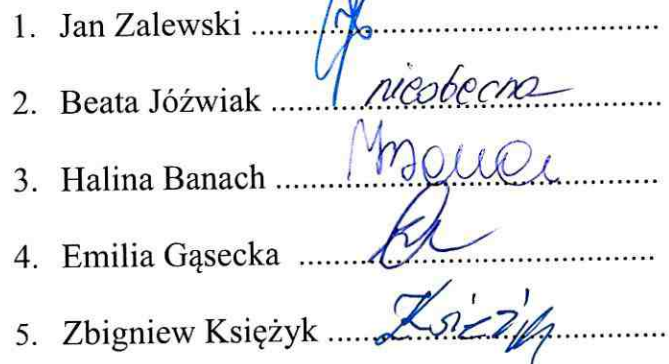 1. Jan Zalewski ..........................................
2. Beata Jóźwiak ....... nieobecna ...............
3. Halina Banach ..........................................
4. Emilia Gąsecka ..........................................
5. Zbigniew Księżyk ..... Księżyk ...............